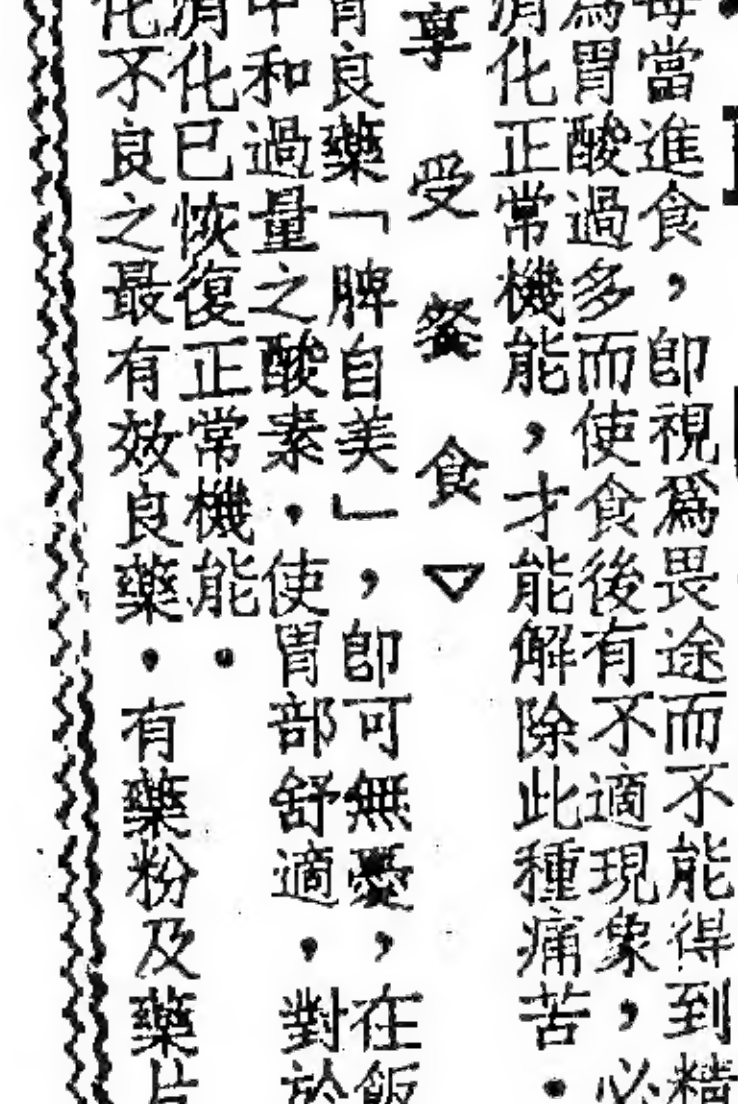 每當進食，卽視爲畏途而不能得到精
爲胃酸過多而使食後有不適現象，必
消化正常機能，才能解除此種痛苦．
享受餐食▽
胃良藥「脾自美」，卽可無憂，在飯
中和過量之酸素．使胃部舒適，對於
消化已恢復正常機能．
化不良之最有效良藥．有藥粉及藥片